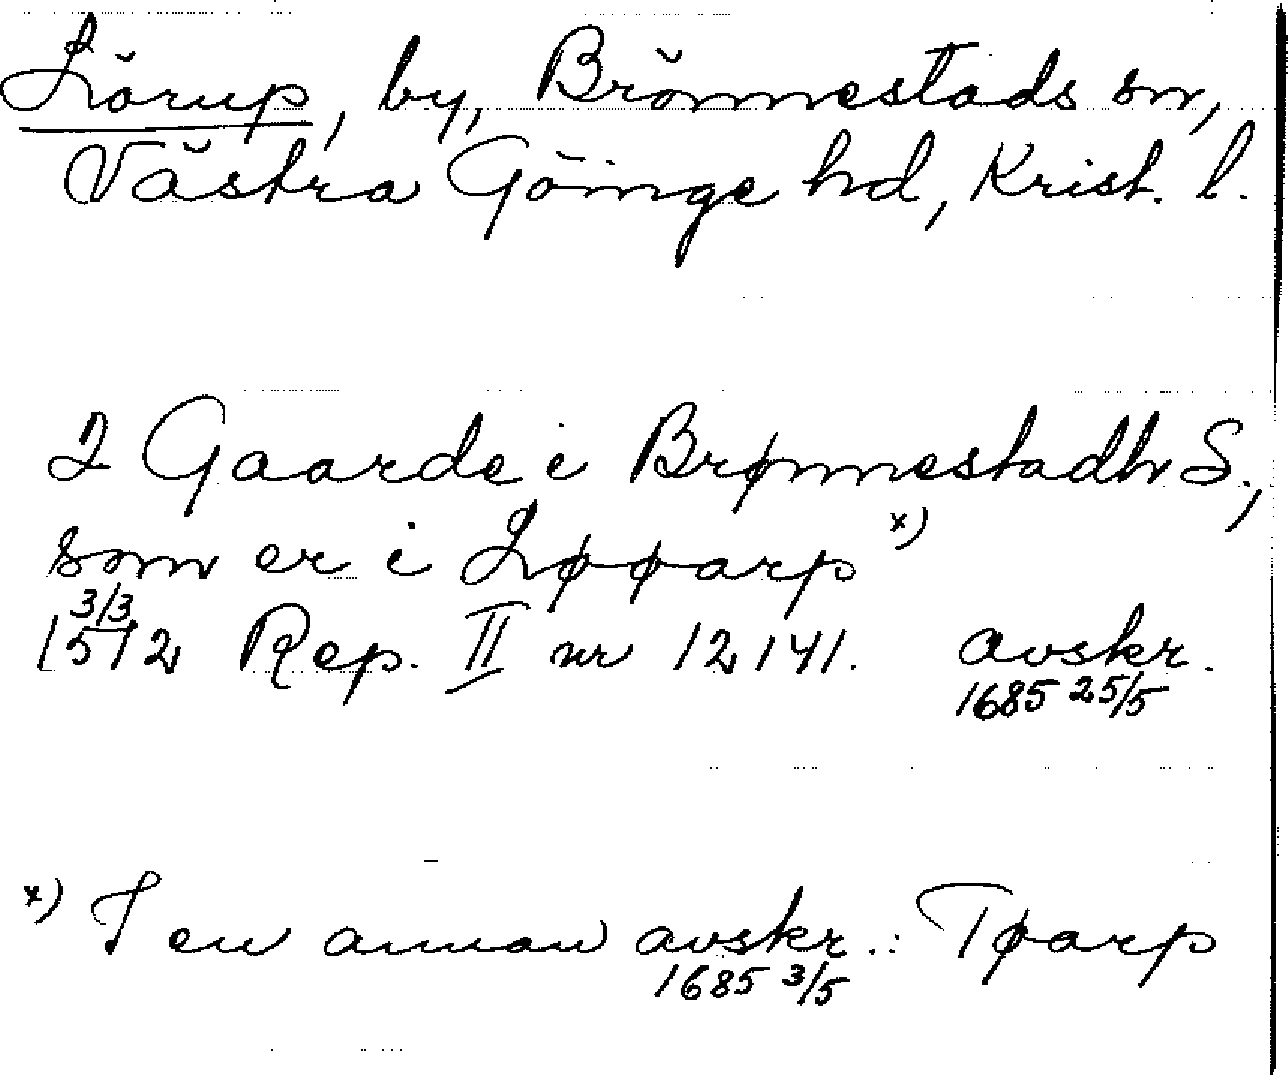 Lörup, by, Brönnestads sn,
Västra Göinge hd, Krist. l.
2 Gaarde i Brønnestadh S.,
som er i Løøarp x)
1512 3/3 Rep. II nr 12141. avskr.
1685 25/5
x) I en annan avskr.: Tøarp
1685 3/5